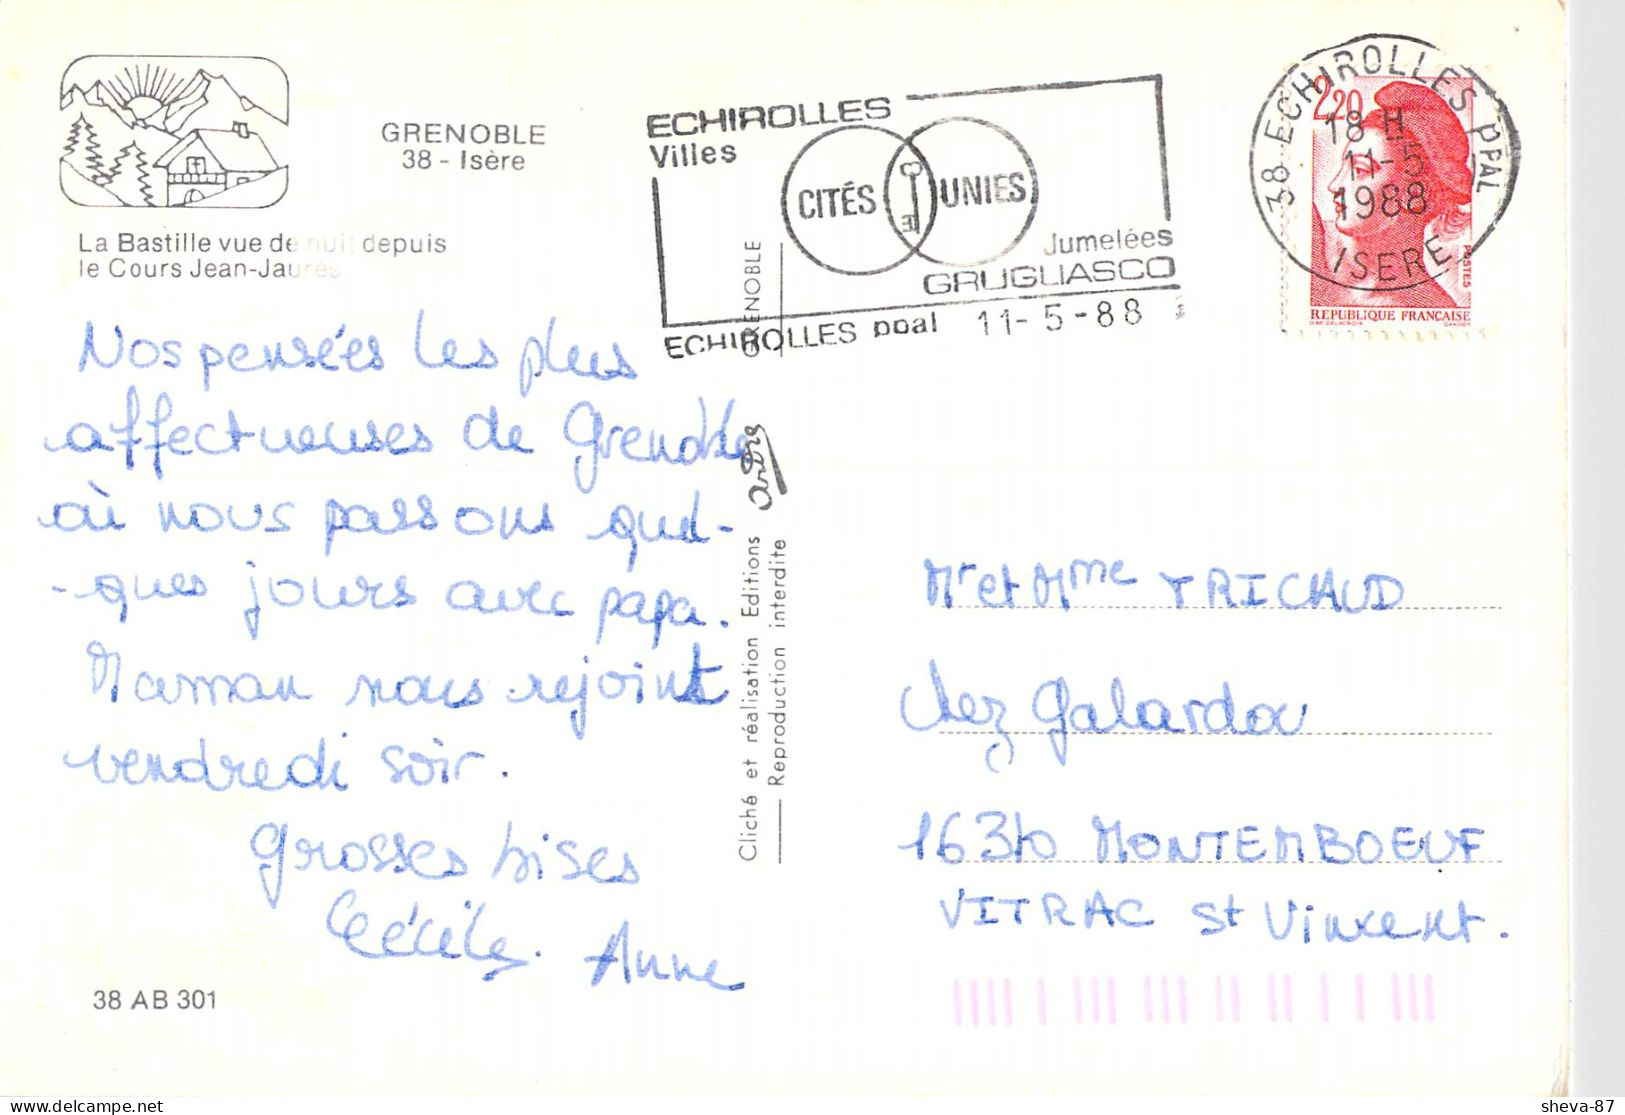 GRENOBLE
38 - Isère
La Bastille vue de nuit depuis
le Cours Jean-Jaurès
Nos pensées les plus
affectueuses de Grenoble
où nous passons quel-
-ques jours avec papa.
Maman nous rejoint
vendredi soir.
Grosses bises
Cécile. Anne
38 AB 301
ECHIROLLES
Villes
CITÉS UNIES
Jumelées
GRUGLIASCO
ECHIROLLES ppal 11-5-88
GRENOBLE
Cliché et réalisation Editions
Reproduction interdite
38 ECHIROLLES PPAL
18 H
11-5
1988
ISERE
2,20
POSTES
REPUBLIQUE FRANÇAISE
D'AP. DELACROIX GANDON
Mr et Mme TRICHAUD
chez Galardou
16310 MONTEMBOEUF
VITRAC St Vincent.
sheva-87